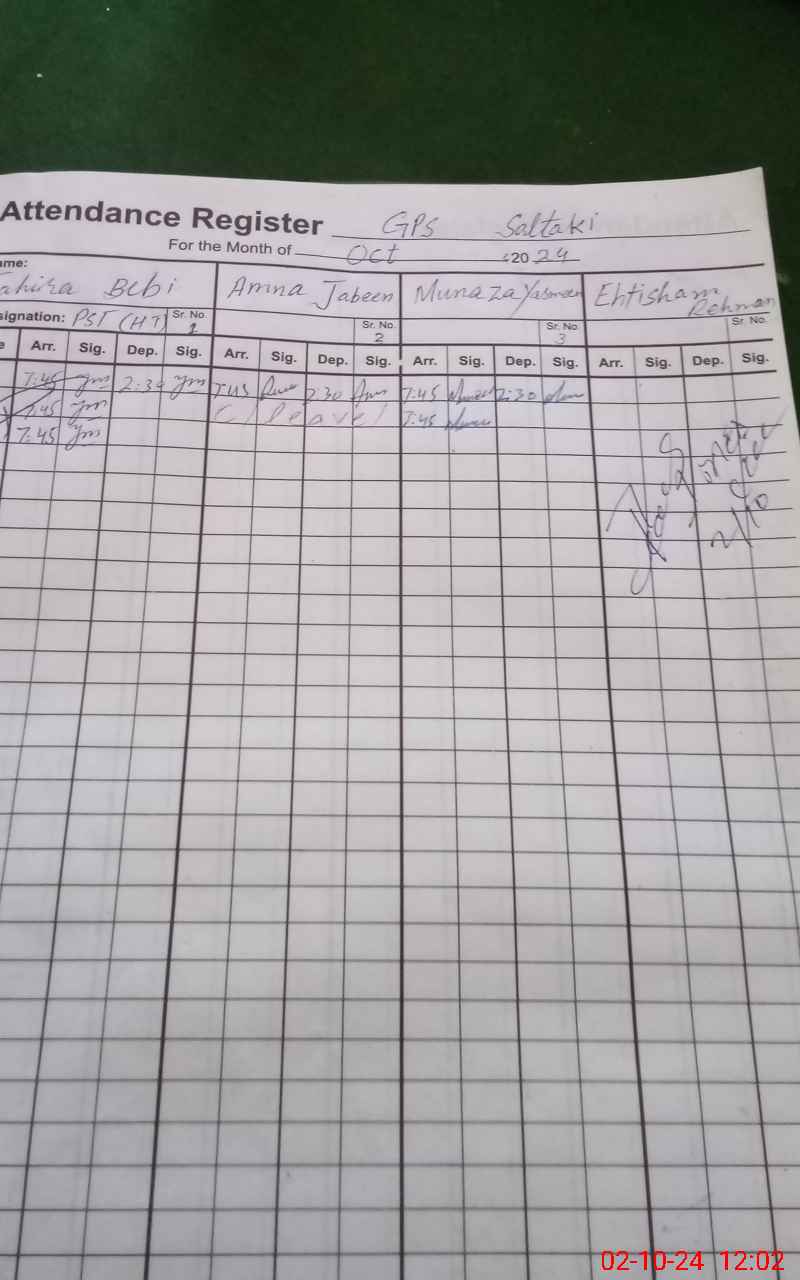 Attendance Register GPS Saltaki
For the Month of Oct 2024
ame: ahira Bebi Amna Jabeen Munaza Yasmeen Ehtisham Rehman
signation: PST (HT) Sr. No. 1 Sr. No. 2 Sr. No. 3 Sr. No.
e Arr. Sig. Dep. Sig. Arr. Sig. Dep. Sig. Arr. Sig. Dep. Sig. Arr. Sig. Dep. Sig.
7:45 2:30 7:45 2:30 7:45 2:30
7:45 C/leave/ 7:45
7:45
2/10
02-10-24 12:02